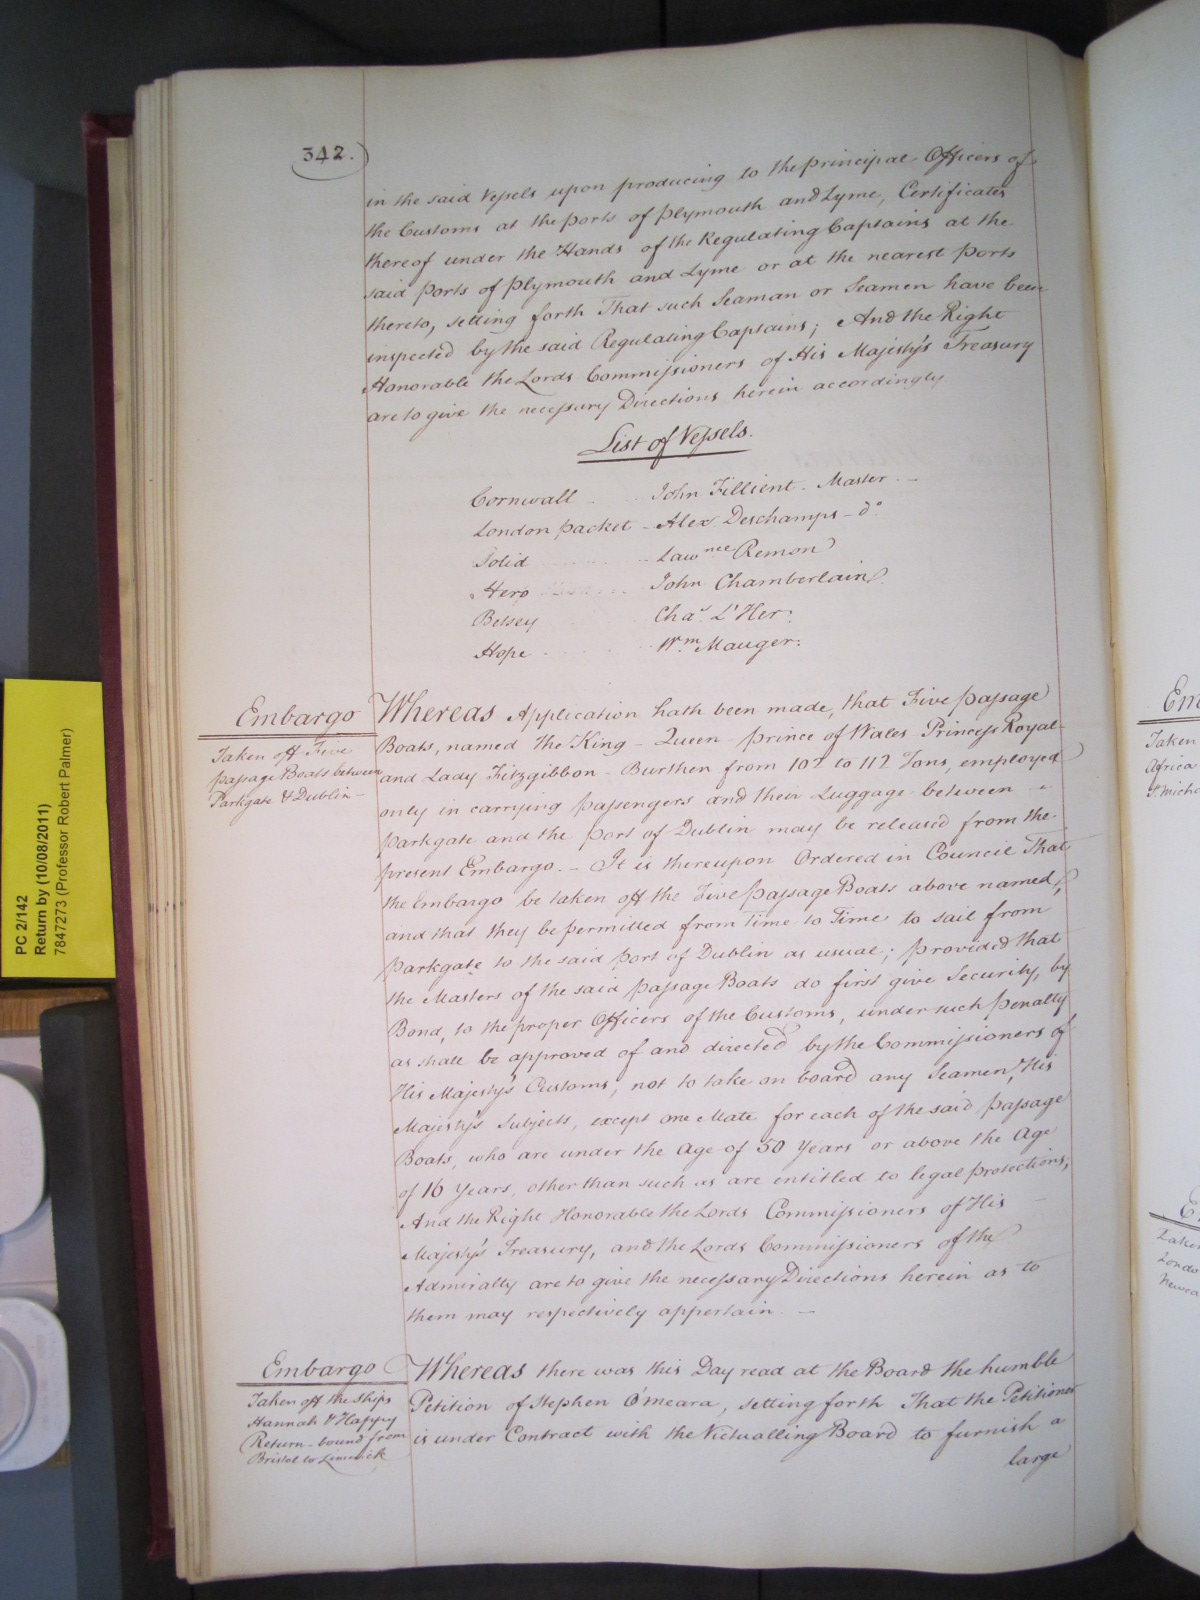 342.
in the said Vessels upon producing to the principal Officers of
the Customs at the ports of plymouth and Lyme, Certificates
thereof under the Hands of the Regulating Captains at the
said ports of plymouth and Lyme or at the nearest ports
thereto, setting forth That such Seaman or Seamen have been
inspected by the said Regulating Captains; And the Right
Honorable the Lords Commissioners of His Majesty's Treasury
are to give the necessary Directions herein accordingly
List of Vessels.
Cornwall - John Fillient - Master -
London packet - Alex. Deschamps - do
Solid Lawnce Remon
Hero John Chamberlain.
Betsey Chas. L'Her:
Hope Wm. Mauger:
Embargo
Taken off Five
passage Boats between
Parkgate & Dublin -
Whereas Application hath been made, that Five passage
Boats, named The King - Queen - prince of Wales - Princess Royal -
and Lady Fitzgibbon - Burthen from 107 to 112 Tons, employed
only in carrying passengers and their Luggage between -
parkgate and the port of Dublin may be released from the
present Embargo. - It is thereupon Ordered in Council That
the Embargo be taken off the Five passage Boats above named,
and that they be permitted from Time to Time to sail from
parkgate to the said port of Dublin as usual; provided that
the Masters of the said passage Boats do first give Security, by
Bond, to the proper Officers of the Customs, under such penalty
as shall be approved of and directed by the Commissioners of
His Majesty's Customs, not to take on board any Seamen, His
Majesty's Subjects, except one Mate for each of the said passage
Boats, who are under the Age of 50 Years or above the Age
of 16 Years, other than such as are entitled to legal protections;
And the Right Honorable the Lords Commissioners of His -
Majesty's Treasury, and the Lords Commissioners of the
Admiralty are to give the necessary Directions herein as to
them may respectively appertain. -
Embargo
Taken off the Ships
Hannah & Happy
Return - bound from
Bristol to Limerick
Whereas there was this Day read at the Board the humble
Petition of Stephen O'meara, setting forth That the Petitioner
is under Contract with the Victualling Board to furnish a
large
PC 2/142
Return by (10/08/2011)
7847273 (Professor Robert Palmer)
Taken
Africa